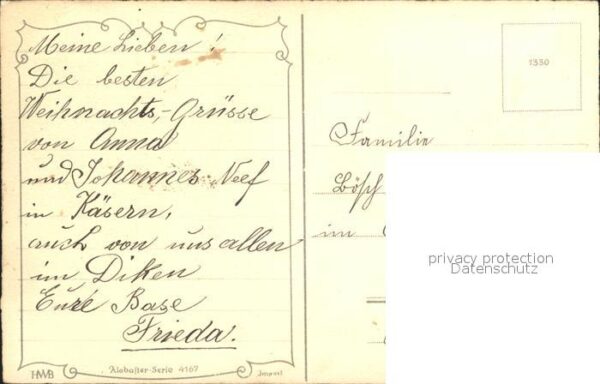 Meine Lieben!
Die besten
Weihnachts-Grüsse
von Anna
und Johannes Neef
in Käsern,
auch von uns allen
im Diken
Eure Base
Frieda.
HWB
Alabaster-Serie 4167
Import
1350
Familie
Bösch
im
privacy protection
Datenschutz